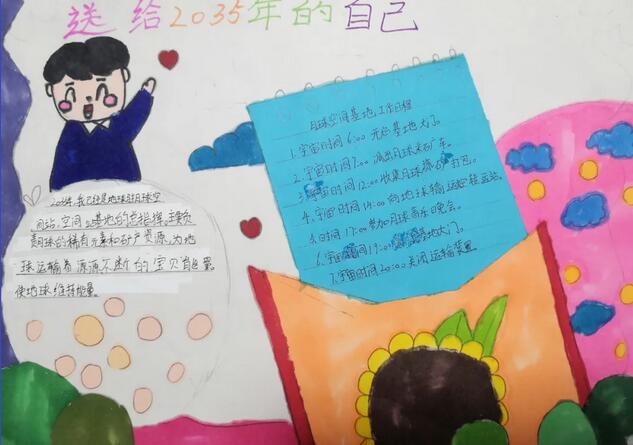 送给2035年的自己
2035年,我已经是地球驻月球空
间站,空间基地的总指挥,主要负
责月球的稀有元素和矿产资源,为地
球运输着源源不断的宝贝能量,
使地球维持能量。
月球空间基地工作日程
1.宇宙时间6:00 开启基地大门。
2.宇宙时间7:00 派出月球采矿车。
3.宇宙时间12:00 收集月球稀矿打包。
4.宇宙时间14:00 向地球输运
5.时间17:00 参加月球音乐晚会。
6.宇宙时间19:00 基地大门。
7.宇宙时间20:00 关闭运输装置